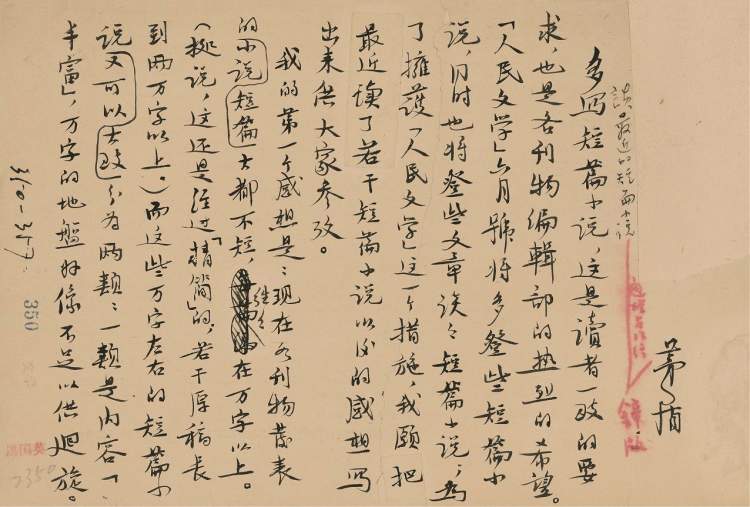 茅盾
谈最近的短篇小说
锌版
多写短篇小说，这是讀者一致的要
求，也是各刊物编輯部的热烈的希望。
「人民文学」六月號将多登些短篇小
说，同时也将登些文章谈々短篇小说；为
了擁護「人民文学」这一个措施，我願把
最近读了若干短篇小说以後的感想写
出来供大家参攷。
我的第一个感想是：现在各刊物發表
的小说短篇大都不短，往々在万字以上。
（据说，这还是经过「精简」的，若干原稿長
到两万字以上。）而这些万字左右的短篇小
说又可以大致分为两類：一類是内容「
丰富」，万字的地盤好像不足以供迴旋。
310-357.
350